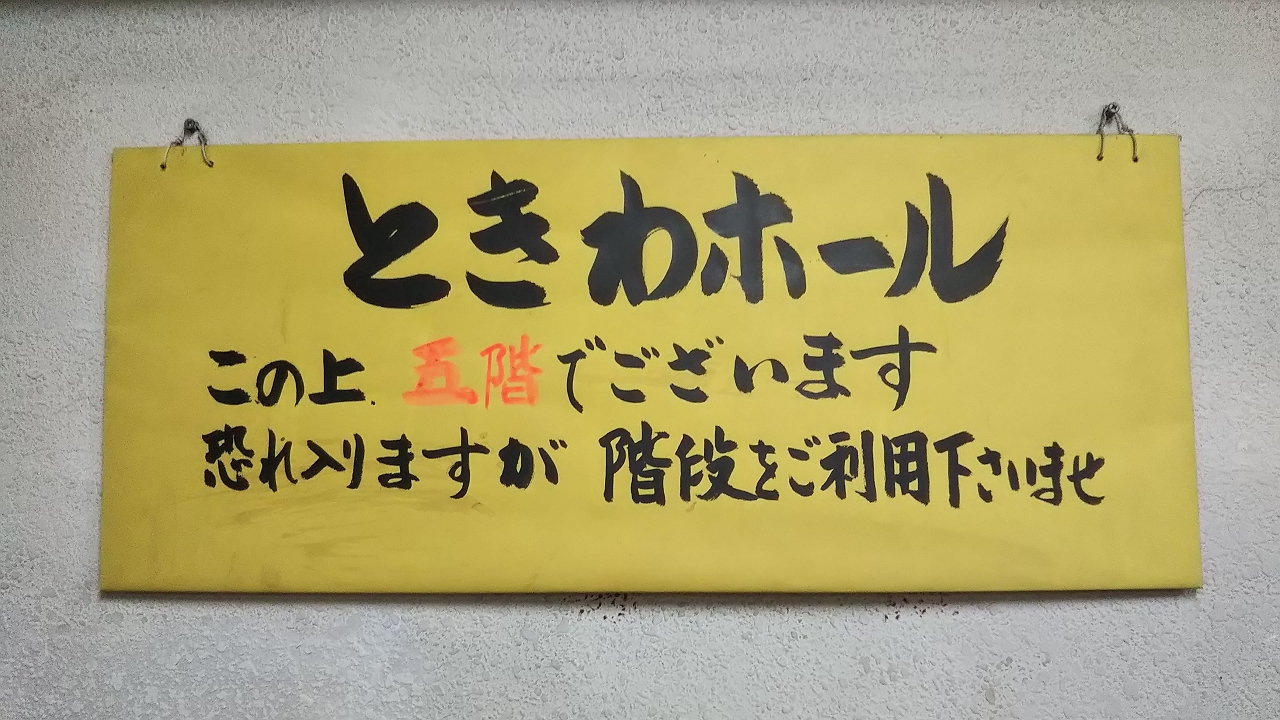 ときわホール
この上 五階でございます
恐れ入りますが 階段をご利用下さいませ